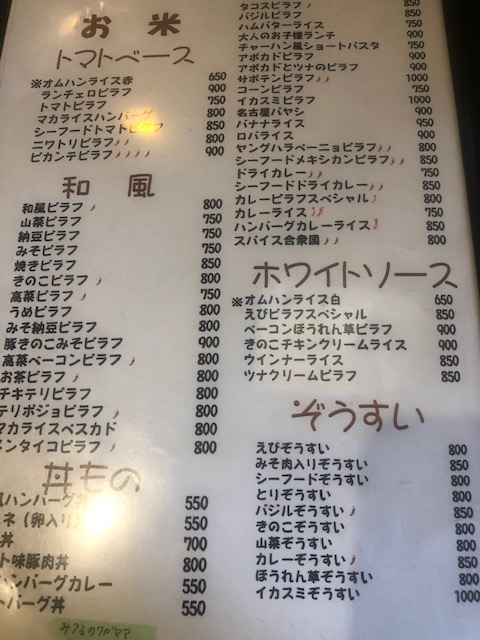 お米
トマトベース
※オムハンライス赤 650
ランチェロピラフ 900
トマトピラフ 750
マカライスハンバーグ 800
シーフードトマトピラフ 850
ニワトリピラフ 800
ピカンテピラフ 900
和風
和風ピラフ 800
山菜ピラフ 750
納豆ピラフ 750
みそピラフ 750
焼きピラフ 850
きのこピラフ 800
高菜ピラフ 750
うめピラフ 800
みそ納豆ピラフ 800
豚きのこみそピラフ 900
高菜ベーコンピラフ 900
お茶ピラフ 800
チキテリピラフ 800
テリポジョピラフ 800
マカライスペスカド 800
メンタイコピラフ 800
丼もの
ハンバーグ 550
ネ(卵入り) 550
丼 700
ト味豚肉丼 800
ハンバーグカレー 550
トバーグ丼 550
タコスピラフ 850
バジルピラフ 850
ハムバターライス 750
大人のお子様ランチ 900
チャーハン風ショートパスタ 750
アボカドピラフ 800
アボカドとツナのピラフ 900
サボテンピラフ 1000
コーンピラフ 750
イカスミピラフ 1000
名古屋バヤシ 900
バナナライス 950
ロバライス 900
ヤングハラペーニョピラフ 800
シーフードメキシカンピラフ 850
ドライカレー 750
シーフードドライカレー 850
カレーピラフスペシャル 800
カレーライス 750
ハンバーグカレーライス 850
スパイス合衆国 800
ホワイトソース
※オムハンライス白 650
えびピラフスペシャル 850
ベーコンほうれん草ピラフ 900
きのこチキンクリームライス 900
ウインナーライス 850
ツナクリームピラフ 850
ぞうすい
えびぞうすい 800
みそ肉入りぞうすい 850
シーフードぞうすい 800
とりぞうすい 800
バジルぞうすい 850
きのこぞうすい 800
山菜ぞうすい 800
カレーぞうすい 850
ほうれん草ぞうすい 800
イカスミぞうすい 1000